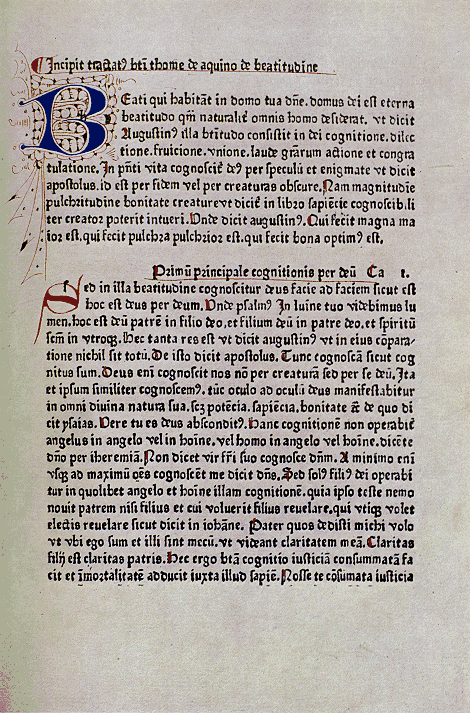 Incipit tractatꝰ bti thome de aquino de beatitudine
BEati qui habitāt in domo tua dn̄e. domus dei est eterna
beatitudo qm̄ naturalit̄ omnis homo desiderat. vt dicit
Augustinꝰ illa btitudo consistit in dei cognitione. dilec
tione. fruicione. vnione. laude grārum actione et congra
tulatione. In pn̄ti vita cognoscit̄ deꝰ per speculū et enigmate vt dicit
apostolus. id est per fidem vel per creaturas obscure. Nam magnitudīe
pulchritudine bonitate creature vt dicit̄ in libro sapiēcie cognoscib̄li
ter creator poterit intueri. Vnde dicit augustinꝰ. Qui fecit magna ma
ior est. qui fecit pulchra pulchrior est. qui fecit bona optimꝰ est.
Primū principale cognitionis per deū Ca 1.
Sed in illa beatitudine cognoscitur deus facie ad faciem sicut est
hoc est deus per deum. Vnde psalmꝰ In luīne tuo videbimus lu
men. hoc est deū patrē in filio deo. et filium deū in patre deo. et spiritū
scm̄ in vtroqꝫ. Hec tanta res est vt dicit augustinꝰ vt in eius cōpara-
tione nichil sit totū. De isto dicit apostolus. Tunc cognoscā sicut cog
nitus sum. Deus eni cognoscit nos nō per creaturā sed per se deū. Ita
et ipsum similiter cognoscemꝰ. tūc oculo ad oculū deus manifestabitur
in omni diuina natura sua. scꝫ potēcia. sapiēcia. bonitate et̄ de quo di
cit ysaias. Vere tu es deus absconditꝰ. Hanc cognitionē non operabit̄
angelus in angelo vel in hoīne. vel homo in angelo vel hoīne. dicēte
dn̄o per iheremiā. Non dicet vir fr̄i suo cognosce dn̄m. A minimo eni
vsqꝫ ad maximū oēs cognoscēt me dicit dn̄s. Sed solꝰ filiꝰ dei operabi
tur in quolibet angelo et hoīne illam cognitionē. quia ipso teste nemo
nouit patrem nisi filius et cui voluerit filius reuelare. qui vtiqꝫ volet
electis reuelare sicut dicit in iohāne. Pater quos dedisti michi volo
vt vbi ego sum et illi sint mecū. vt videant claritatem meā. Claritas
filij est claritas patris. Hec ergo btā cognitio iusticiā consummatā fa
cit et īmortalitatē adducit iuxta illud sapiē. Nosse te cōsumata iusticia